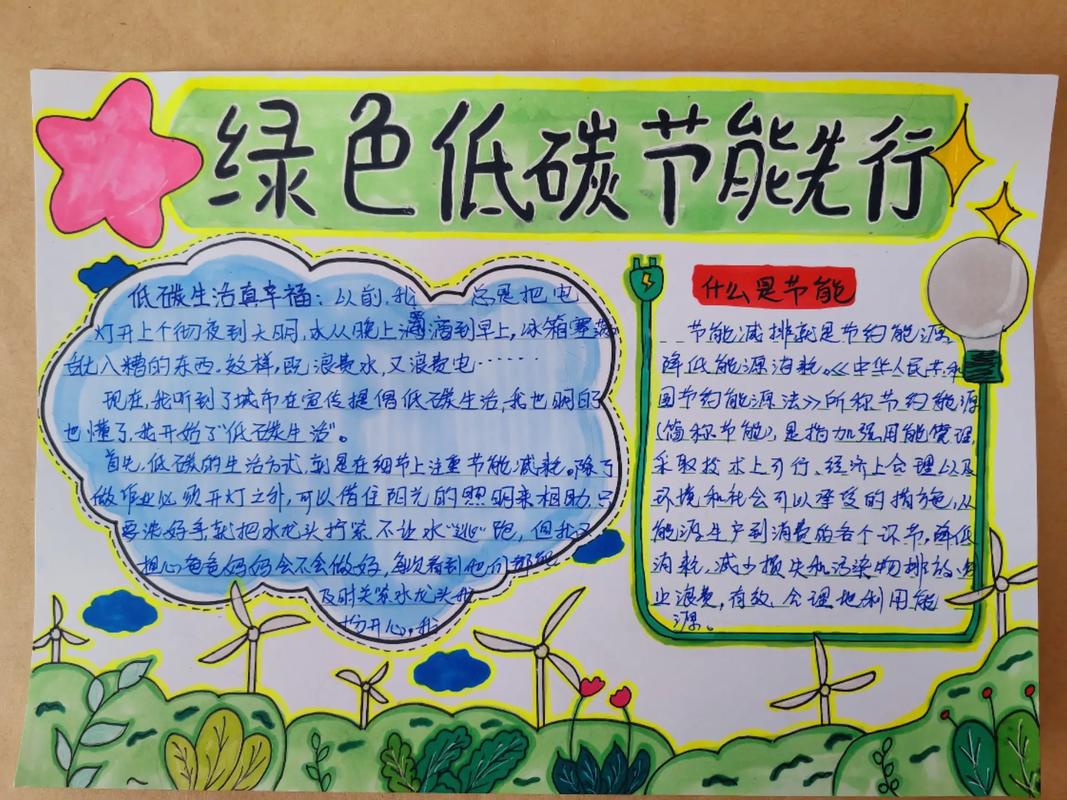 绿色低碳节能先行
低碳生活真幸福：以前，我 总是把电
灯开上个彻夜到大明，水从晚上滴滴到早上，冰箱塞
入糟的东西。这样，既浪费水，又浪费电……
现在，我听到了城市在宣传提倡低碳生活，我也明白了
也懂了，我开始了“低碳生活”。
首先，低碳的生活方式，就是在细节上注重节能减耗。除了
做作业必须开灯之外，可以借住阳光的照明来相助，只
要洗好手，就把水龙头拧紧 不让水“逃”跑，但我又
担心爸爸妈妈会不会做好，每次看到他们都能
及时关紧水龙头我
开心，我
什么是节能
节能减排就是节约能源、
降低能源消耗，《中华人民共和
国节约能源法》所称节约能源
（简称节能），是指加强用能管理，
采取技术上可行、经济上合理以及
环境和社会可以承受的措施，从
能源生产到消费的各个环节，降低
消耗、减少损失和污染物排放、制
止浪费，有效、合理地利用能
源。